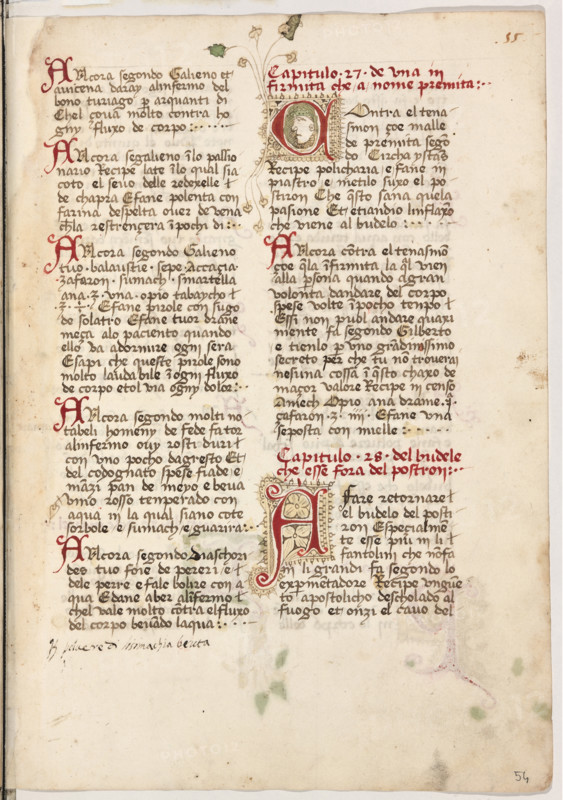 55
Alcora segondo Galieno et
auicena daray alinfermo del
bono turiago p arquanti di
Chel coua molto contra ho
gny fluxo de corpo:
Alcora segalieno ĩlo passio
nario Recipe late ĩlo qual sia
coto el seuo delle redexelle t
de chapra Efane polenta con
farina despelta ouer de vena
chla restrengera ĩpochi di:
Alcora segondo Galieno
tuo · balaustie · sepe · Accagia·
zafaron · sumach · smartella
ana · ʒ · vna · opio tabaycho t
Efane pirole con sugo
de solatro Efane tuor drãme
meça alo paciente quando
ello va adormire ogni sera
Esapi che queste pirole sono
molto laudabile ĩ ogni fluxo
de corpo etol via ogny dolor:
Alcora segondo molti no
tabeli homeny de fede fa tor
alinfermo ouy rosti duri t
con vno pocho dagresto Et
del codognato spese fiade e
mazi pan de meyo e beua
vino rosso temperado con
aqua in la qual siano cote
sorbole e sumach e guarira:
Alcora segondo Diaschori
des tuo foie de pereri e t
dele perre e fale bolire con a
qua Edane aber alĩfermo t
chel vale molto cõtra elfluxo
del corpo beuado laqua:
Capitulo · 27 · de vna in
firmita che a nome premita:
Contra el tena
smon çoe malle
de premita segõ
do Circha ystãs
Recipe policharia e fane in
piastro e metilo suxo el po
stiron Che q̃sto sana quela
pasione Et etiandio linflaxõ
che viene al budelo :
Alcora cõtra el tenasmõ
çoe q̃la ĩfirmita la q̃l vien
alla psona quando a gran
volonta dandare del corpo
spese volte ĩpocho tempo t
Essi non puol andare quaxi
mente fa segondo Gilberto
e tienlo p vno grãdinissimo
secreto per che tu nõ trouerai
nesuna cossa ĩ q̃sto chaxo de
maçor valore Recipe in censo
Aniech Opio ana drame
çafaron · ʒ · iij · Efane vna
seposta con mielle :
Capitulo · 28 · del budele
che esse fora del postron:
A fare retornare t
el budelo del posti
ron Especialmẽ
te esse piu in li t
fantolini che nõ fa
in li grandi fa segondo lo
expimẽtadore Recipe vnguẽ
to apostolicho descholado al
fuogo et onzi el cauo del
54